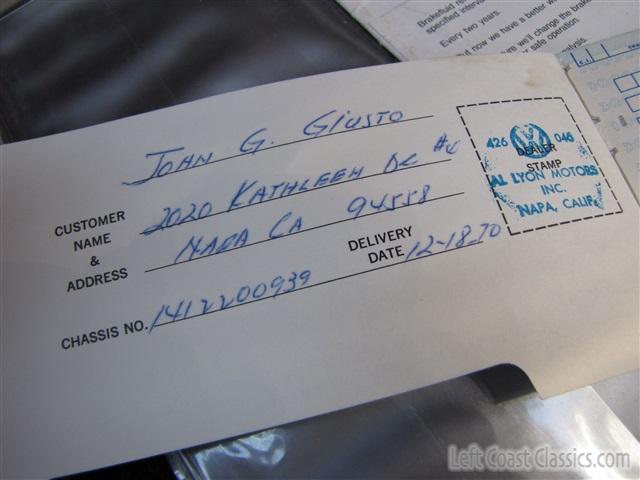 Brakefluid re
specified interv
Every two years.
nd now we have a better w
sure we'll change the brake
r safe operation.
JOHN G. GIUSTO
2020 KATHLEEN DR #4
NAPA CA 94558
CUSTOMER
NAME
&
ADDRESS
DELIVERY
DATE 12-18-70
CHASSIS NO. 1412200939
426 046
DEALER
STAMP
AL LYON MOTORS
INC.
NAPA, CALIF.
Left Coast Classics.com